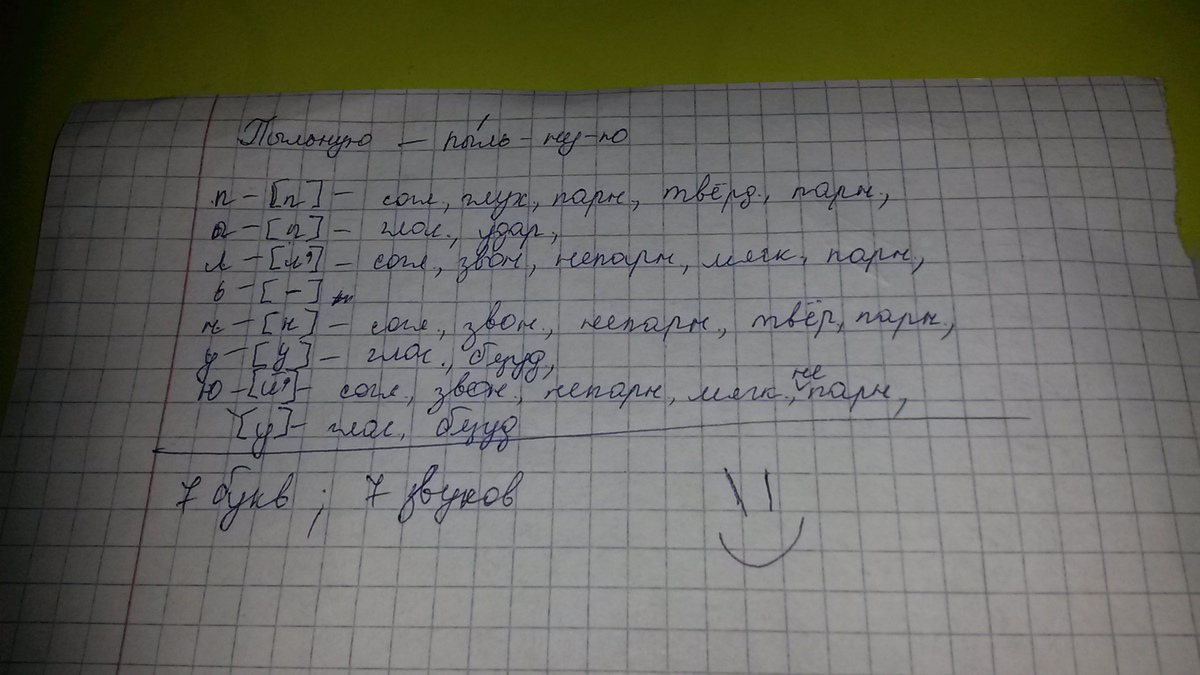 Пыльную — пы́ль-ну-ю
п - [п] - согл., глух, парн, твёрд., парн.,
ы - [ы] - глас., удар,
л - [л'] - согл, звон, непарн, мягк, парн,
ь - [-]
н - [н] - согл., звон., непарн., твёр, парн.,
у - [у] - глас., безуд,
ю - [й'] - согл., звон., непарн, мягк., непарн,
[у] - глас, безуд
7 букв ; 7 звуков